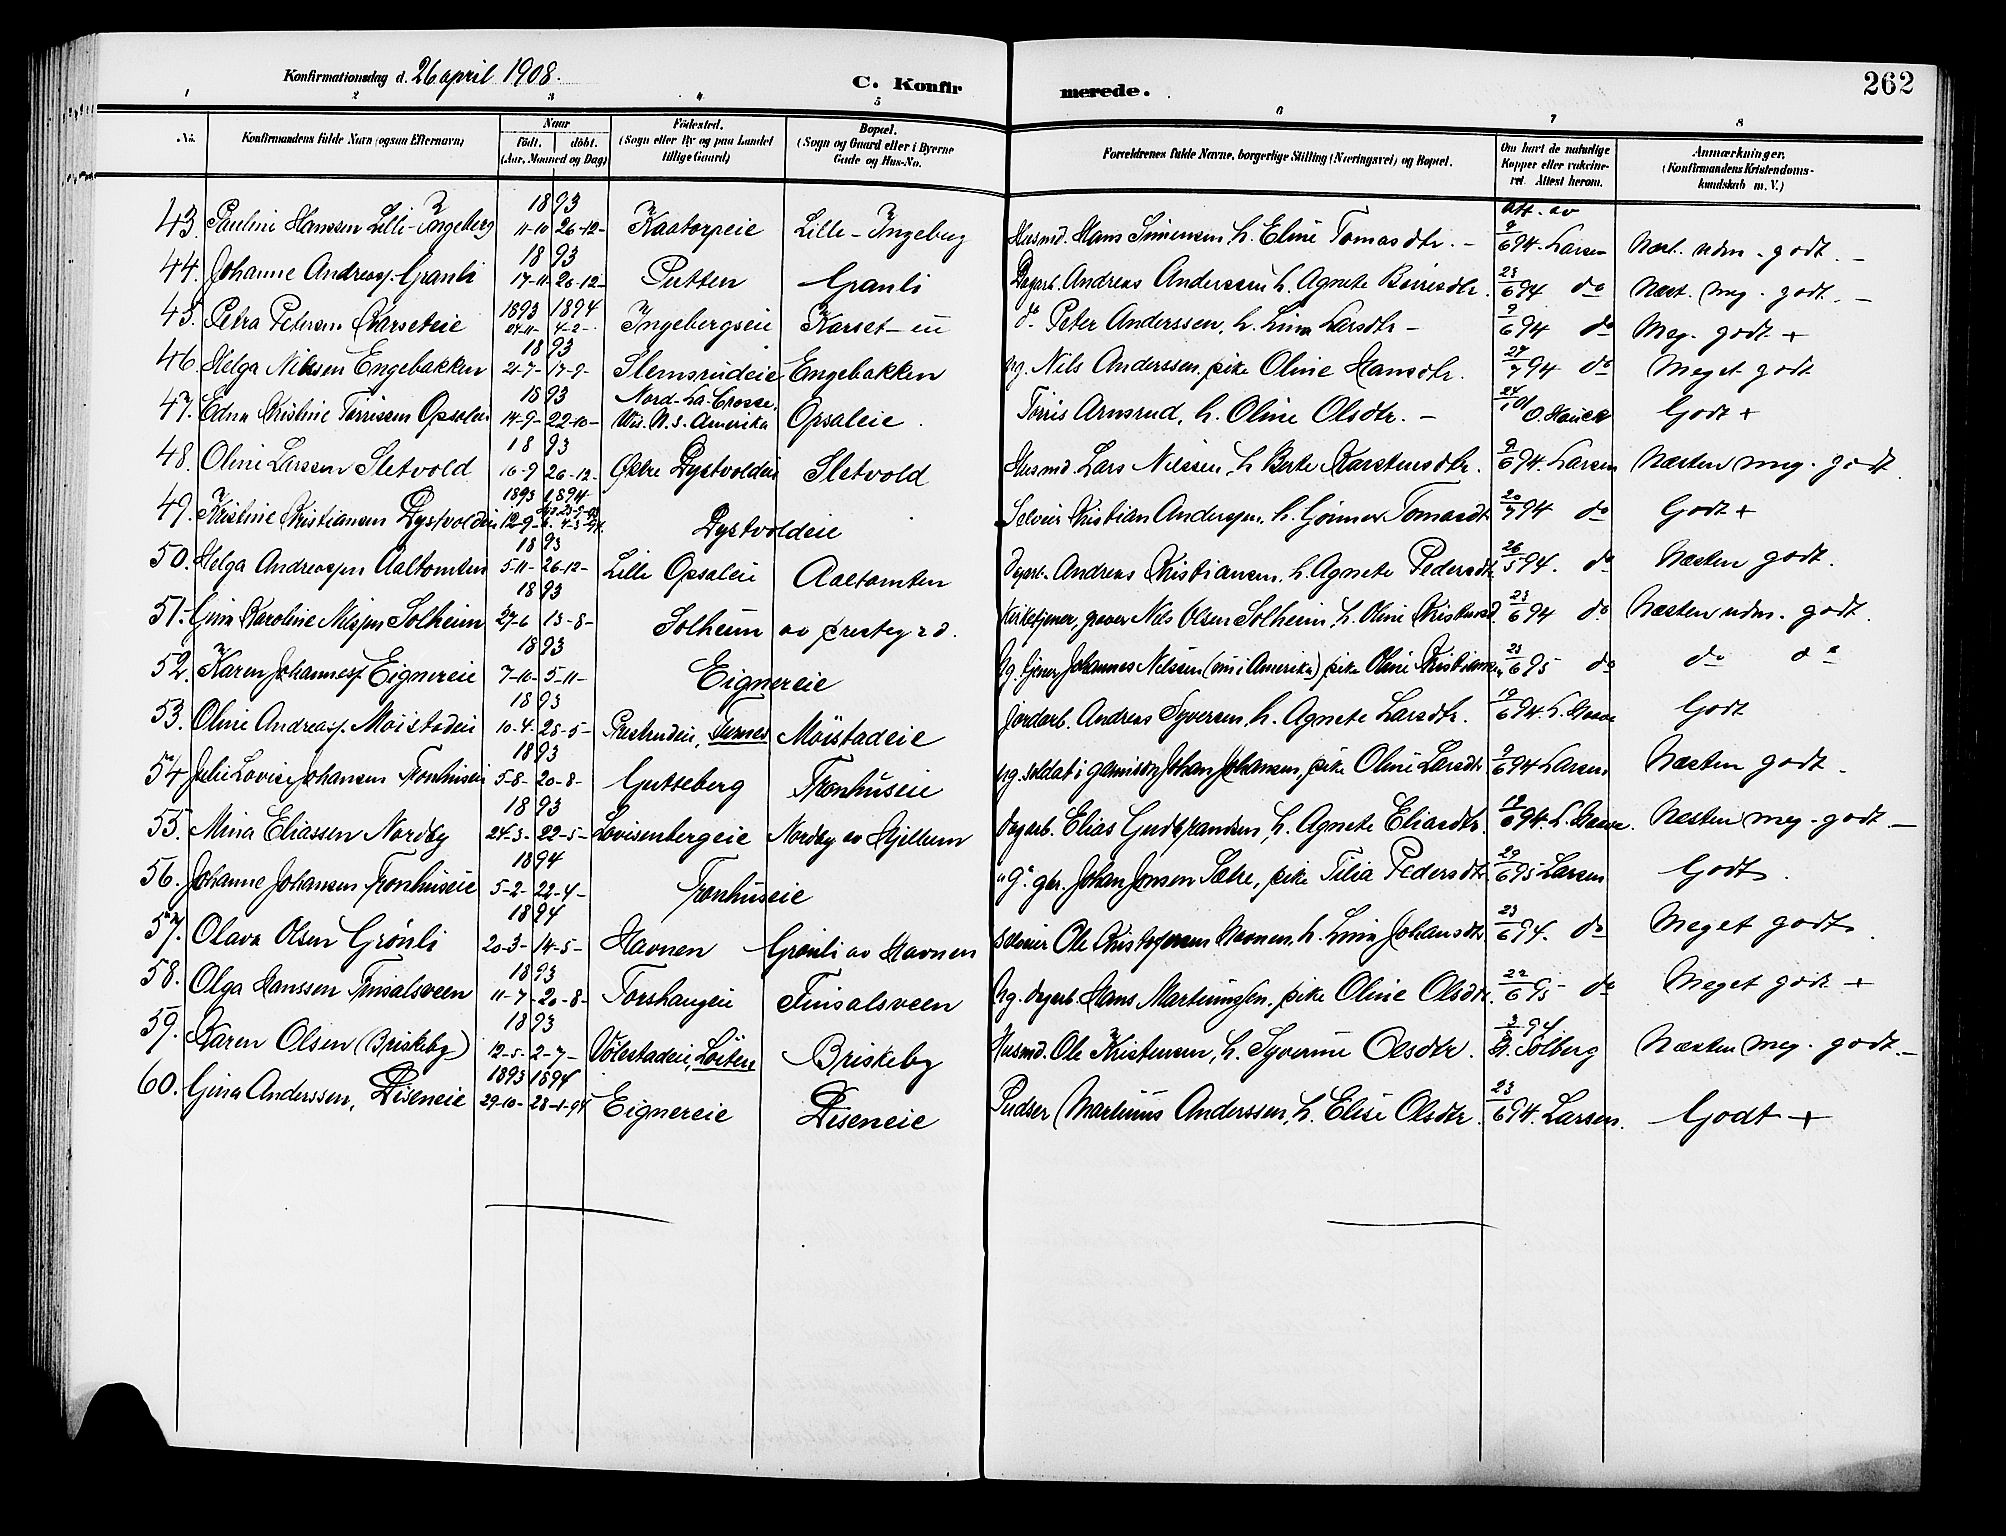 262
Konfirmationsdag d. 26 april 1908.
C. Konfirmerede.
1 2 3 4 5 6 7 8
No. Konfirmandens fulde Navn (ogsaa Efternavn) Naar født. døbt. (Aar, Maaned og Dag) Fødested. (Sogn eller By og paa Landet tillige Gaard) Bopæl. (Sogn og Gaard eller i Byerne Gade og Hus-No. Forældrenes fulde Navne, borgerlige Stilling (Næringsvei) og Bopæl. Om havt de naturlige Kopper eller vakcineret. Attest herom. Anmærkninger. (Konfirmandens Kristendomskundskab m. V.)
1893 att. av
43. Pauline Hanssen Lille-Ingeberg 11-10 26-12- Kaatorpeie Lille-Ingeberg Husmd. Hans Simensen h. Eline Tomasdtr. - 9/6 94. Larsen Næst. udm. godt. -
1893
44. Johanne Andreasj. Granli 17-11- 26-12- Putten Granli Dagarb. Andreas Anderssen h. Agnete Børresdtr. 23/6 94 do Næst. meg. godt. -
1893 1894
45. Petra Petersen Karseteie 24-11- 4-2- Ingebergseie Karset-eie do Peter Anderssen, h. Lina Larsdtr - 9/6 94 do Meg. godt +
1893
46. Helga Nilssen Engebakken 21-7- 17-9- Slemsrudeie Engebakken ug. Nils Anderssen, pike Oline Hansdtr. 27/7 94 do Meget godt
1893
47. Edna Kristine Tørrissen Opsaleie 14-9- 22-10- Nord-La-Crosse, Wis. N. S. Amerika Opsaleie. Tørris Arnsrud, h. Oline Olsdtr. - 24/1 01 O. Hauck Godt +
1893
48. Oline Larssen Sletvold 16-9 26-12- Østre Dystvoldeie Sletvold Husmd. Lars Nilssen, h. Berte Karstensdtr. 9/6 94. Larsen Næsten meg. godt.
1893 1894
49. Kristine Kristiansen Dystvoldeie 12-9- 4-3-94. Dystvoldeie Selveier Kristian Anderssen, h. Gønner Tomasdtr 20/7 94 do Godt +
1893
50. Helga Andreassen Aaltomten 5-11- 26-12- Lille Opsaleie Aaltomten Dgarb. Andreas Kristiansen, h. Agnete Pedersdtr 26/5 94. do Næsten godt.
1893
51. Gina Karoline Nilssen Solheim 27-6 13-8- Solheim av prestegrd. Kirketjener, graver Nils Olsen Solheim, h. Oline 23/6 94 do Næsten udm. godt.
1893
52. Karen Johannesj. Eignereie 7-10- 5-11- Eignereie Ug. tjener Johannes Nilssen (nu i Amerika) pike Oline Kristiansen 23/6 95 do do do
1893
53. Oline Andreasj. Møistadeie 10-4- 28-5- Prestrudeie, Furnes Møistadeie Jordarb. Andreas Syversen, h. Agnete Larsdtr. 19/6 94 Godt
1893
54 Julie Lovise Johansen Tronhuseie 5-8- 20-8- Gutseberg Tronhuseie ug. soldat i garnison Johan Johansen, pike Oline Larsdtr 9/6 94 Larsen Næsten godt -
1893
55. Mina Eliassen Nordby 24-3- 22-5- Lovisenbergeie Nordby av Hjellum Dagarb. Elias Gudbrandsen, h. Agnete Eliasdtr. 19/6 94. Næsten meg. godt. -
1894
56. Johanne Johansen Tronhuseie 5-2- 22-4- Tronhuseie "g." gbr. Johan Jensen Sætre, pike Tilia Pedersdtr. 29/6 95 Larsen Godt.
1894
57. Olava Olsen Grønli 20-3- 14-5- Havnen Grønli av Havnen Selveier Ole Kristofersen Havnen, h. Lina Johansdtr 23/6 94. do Meget godt.
1893
58. Olga Hanssen Finsalsveen 11-7- 20-8- Torshaugeie Finsalsveen Ug. dagarb. Hans Martinussen, pike Oline Olsdtr. 22/6 95 do Meget godt +
1893
59. Karen Olsen (Briskeby) 12-5- 2-7- Volestadeie, Løiten Briskeby Husmd. Ole Kristensen, h. Syverine Olsdtr. 3/8 94 Solberg Næsten meg. godt. -
1893 1894
60. Gina Anderssen, Diseneie 29-10- 28-1-94 Eignereie Diseneie Pudser Martinus Anderssen, h. Elise Olsdtr. 23/6 94. Larsen. Godt +